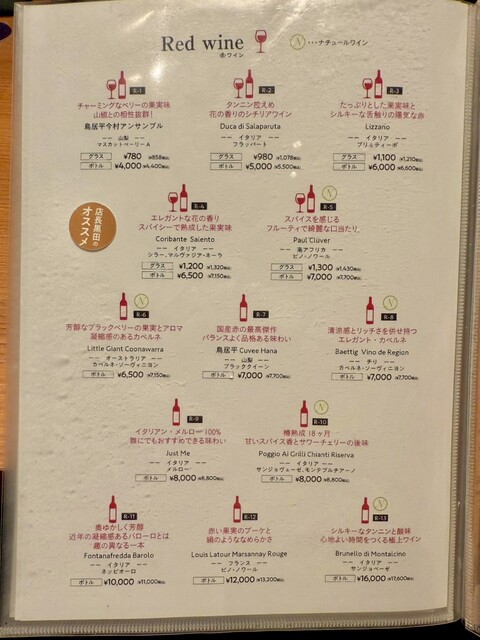 Red wine
赤ワイン
N ･･･ナチュールワイン
R-1
チャーミングなベリーの果実味
山椒との相性抜群!
鳥居平今村アンサンブル
ーー 山梨 ーー
マスカットベーリーA
グラス ¥780 (¥858税込)
ボトル ¥4,000 (¥4,400税込)
R-2
タンニン控えめ
花の香りのシチリアワイン
Duca di Salaparuta
ーー イタリア ーー
フラッパート
グラス ¥980 (¥1,078税込)
ボトル ¥5,000 (¥5,500税込)
R-3
たっぷりとした果実味と
シルキーな舌触りの陽気な赤
Lizzano
ーー イタリア ーー
プリミティーボ
グラス ¥1,100 (¥1,210税込)
ボトル ¥6,000 (¥6,600税込)
店長黒田の
オススメ
R-4
エレガントな花の香り
スパイシーで熟成した果実味
Coribante Salento
ーー イタリア ーー
シラー、マルヴァジア・ネーラ
グラス ¥1,200 (¥1,320税込)
ボトル ¥6,500 (¥7,150税込)
N
R-5
スパイスを感じる
フルーティで綺麗な口当たり
Paul Clüver
ーー 南アフリカ ーー
ピノ・ノワール
グラス ¥1,300 (¥1,430税込)
ボトル ¥7,000 (¥7,700税込)
N
R-6
芳醇なブラックベリーの果実とアロマ
凝縮感のあるカベルネ
Little Giant Coonawarra
ーー オーストラリア ーー
カベルネ・ソーヴィニヨン
ボトル ¥6,500 (¥7,150税込)
R-7
国産赤の最高傑作
バランスよく品格ある味わい
鳥居平 Cuvee Hana
ーー 山梨 ーー
ブラッククイーン
ボトル ¥7,000 (¥7,700税込)
N
R-8
清涼感とリッチさを併せ持つ
エレガント・カベルネ
Baettig Vino de Region
ーー チリ ーー
カベルネ・ソーヴィニヨン
ボトル ¥7,000 (¥7,700税込)
R-9
イタリアン・メルロー100%
誰にでもおすすめできる味わい
Just Me
ーー イタリア ーー
メルロー
ボトル ¥8,000 (¥8,800税込)
N
R-10
樽熟成18ヶ月
甘いスパイス香とサワーチェリーの後味
Poggio Ai Grilli Chianti Riserva
ーー イタリア ーー
サンジョヴェーゼ、モンテプルチアーノ
ボトル ¥8,000 (¥8,800税込)
R-11
奥ゆかしく芳醇
近年の凝縮感あるバローロとは
趣の異なる一本
Fontanafredda Barolo
ーー イタリア ーー
ネッビオーロ
ボトル ¥10,000 (¥11,000税込)
R-12
赤い果実のブーケと
絹のようななめらかさ
Louis Latour Marsannay Rouge
ーー フランス ーー
ピノ・ノワール
ボトル ¥12,000 (¥13,200税込)
N
R-13
シルキーなタンニンと酸味
心地よい時間をつくる極上ワイン
Brunello di Montalcino
ーー イタリア ーー
サンジョベーゼ
ボトル ¥16,000 (¥17,600税込)